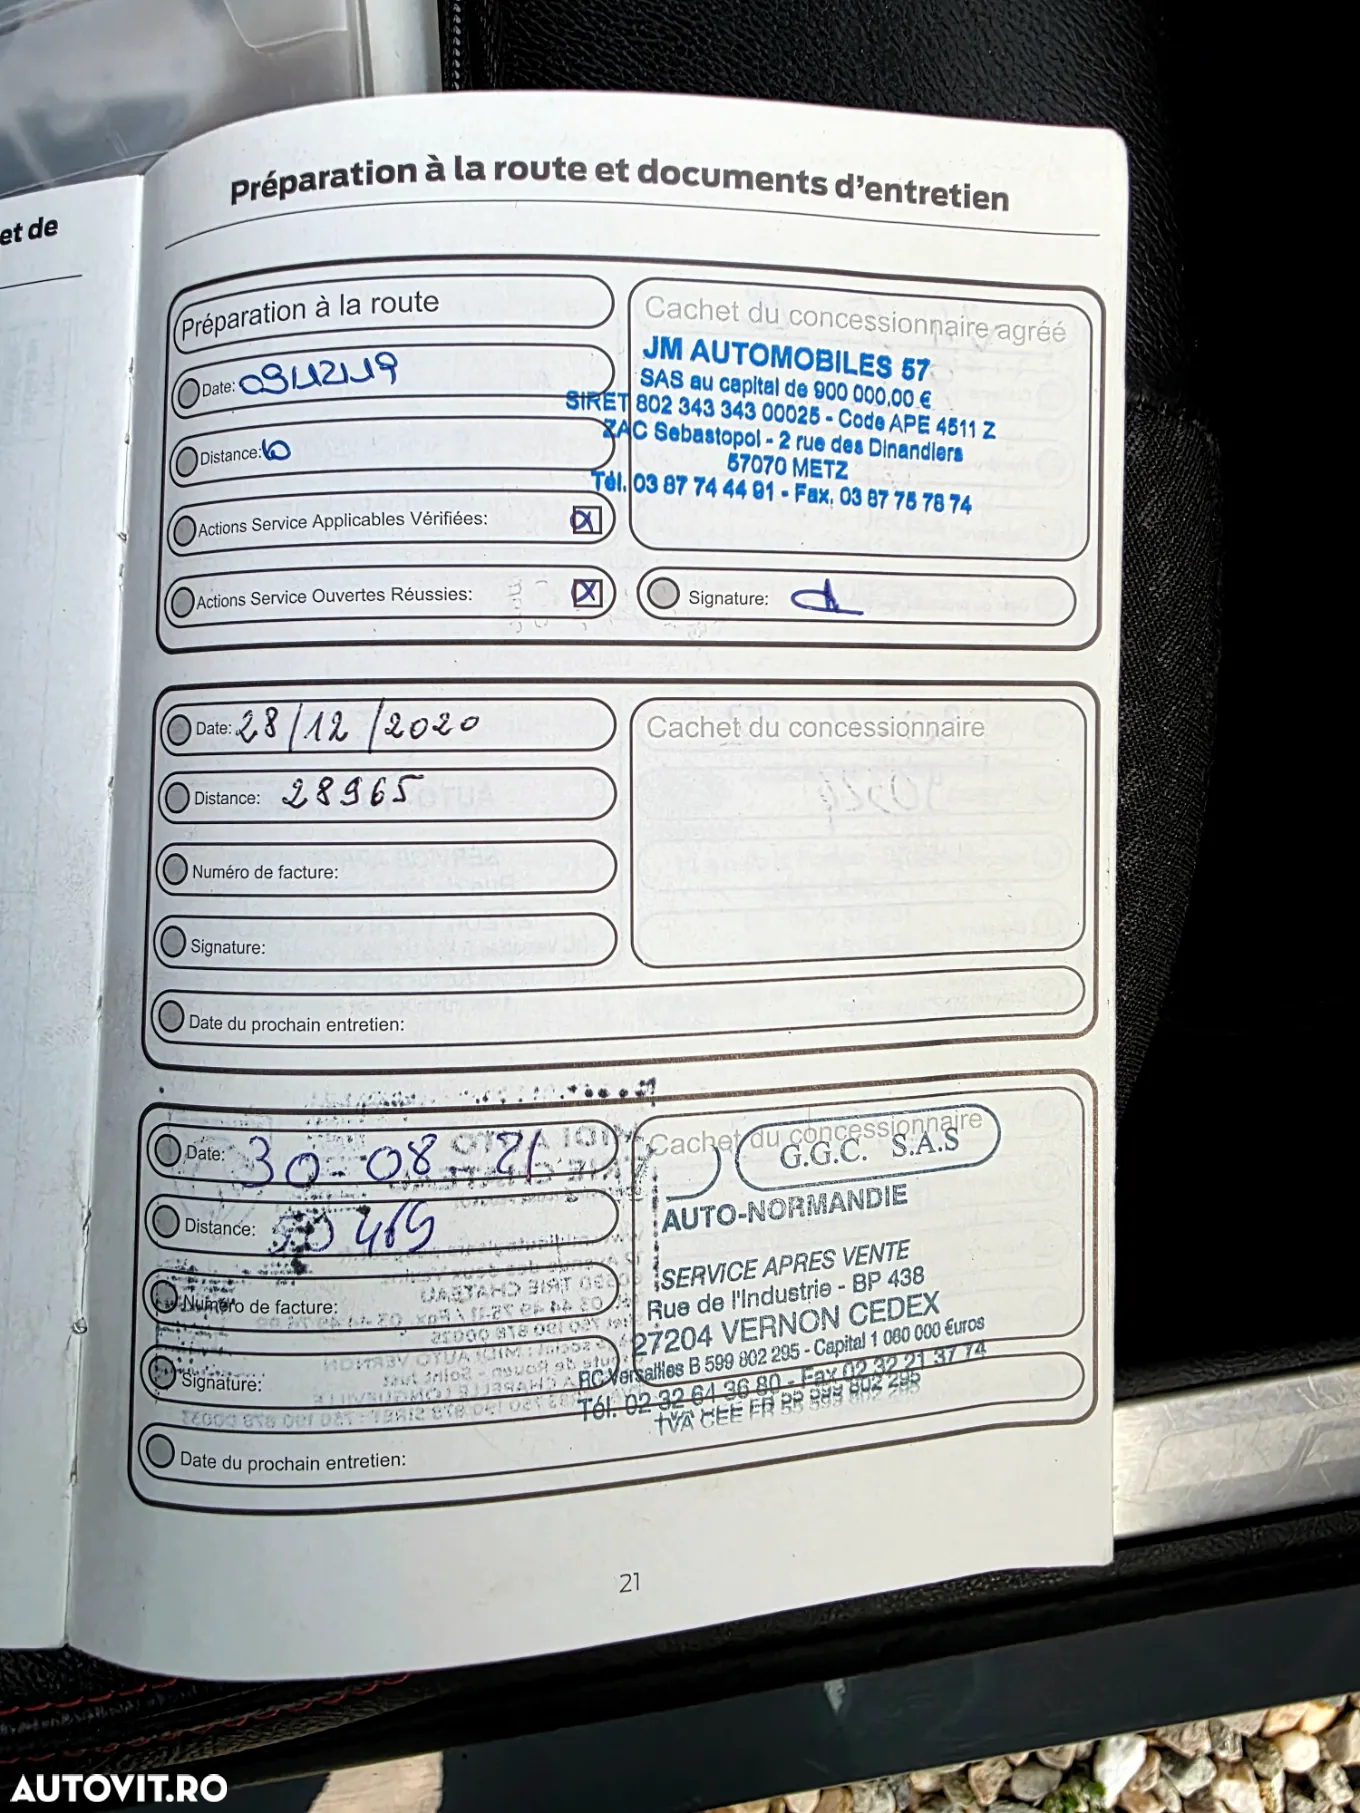 et de
Préparation à la route et documents d'entretien
Préparation à la route
Date: 09/12/19
Distance:
Actions Service Applicables Vérifiées:
Actions Service Ouvertes Réussies:
Cachet du concessionnaire agréé
JM AUTOMOBILES 57
SAS au capital de 900 000,00 €
SIRET 802 343 343 00025 - Code APE 4511 Z
ZAC Sebastopol - 2 rue des Dinandiers
57070 METZ
Tél. 03 87 74 44 91 - Fax. 03 87 75 78 74
Signature:
Date: 28/12/2020
Distance: 28965
Numéro de facture:
Signature:
Date du prochain entretien:
Cachet du concessionnaire
Date: 30-08-21
Distance:
Numéro de facture:
Signature:
Date du prochain entretien:
Cachet du concessionnaire
G.G.C. S.A.S
AUTO-NORMANDIE
SERVICE APRES VENTE
Rue de l'Industrie - BP 438
27204 VERNON CEDEX
RC Versailles B 599 802 295 - Capital 1 080 000 €uros
Tél. 02 32 64 36 80 - Fax 02 32 21 37 74
TVA CEE FR
21
AUTOVIT.RO